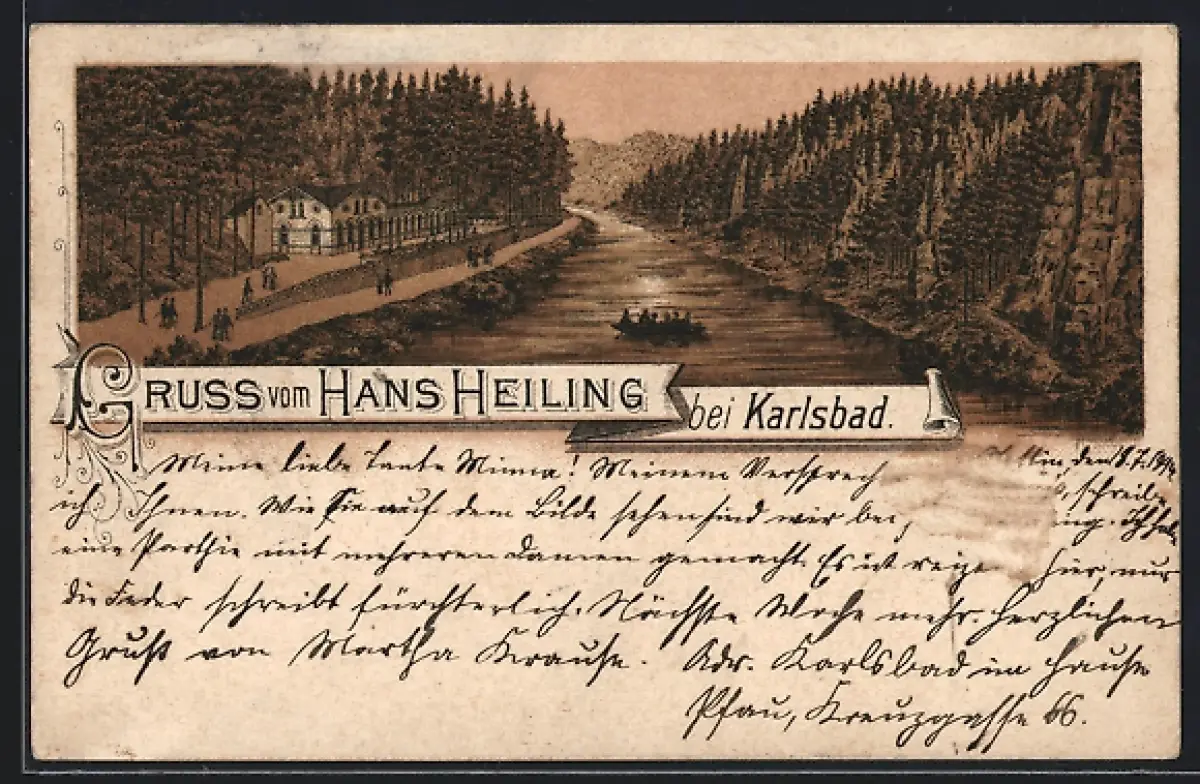 GRUSS vom HANS HEILING
bei Karlsbad.
Meine liebe Tante Minna! Meinem Versprech den 8.7.
ich Ihnen. Wie Sie auf dem Bilde sehen sind wir bei schreibe
eine Parthie mit mehreren Damen gemacht. Es ist reize hier, nur
die Feder schreibt fürchterlich. Nächste Woche mehr. Herzlichen
Gruß von Martha Krause. Adr. Karlsbad im Hause
Pfau, Kreuzgasse 66.